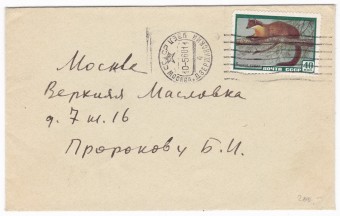 ПОЧТА СССР 40
Москва
Верхняя Масловка
д. 7 м. 16
Пророкову Б.И.